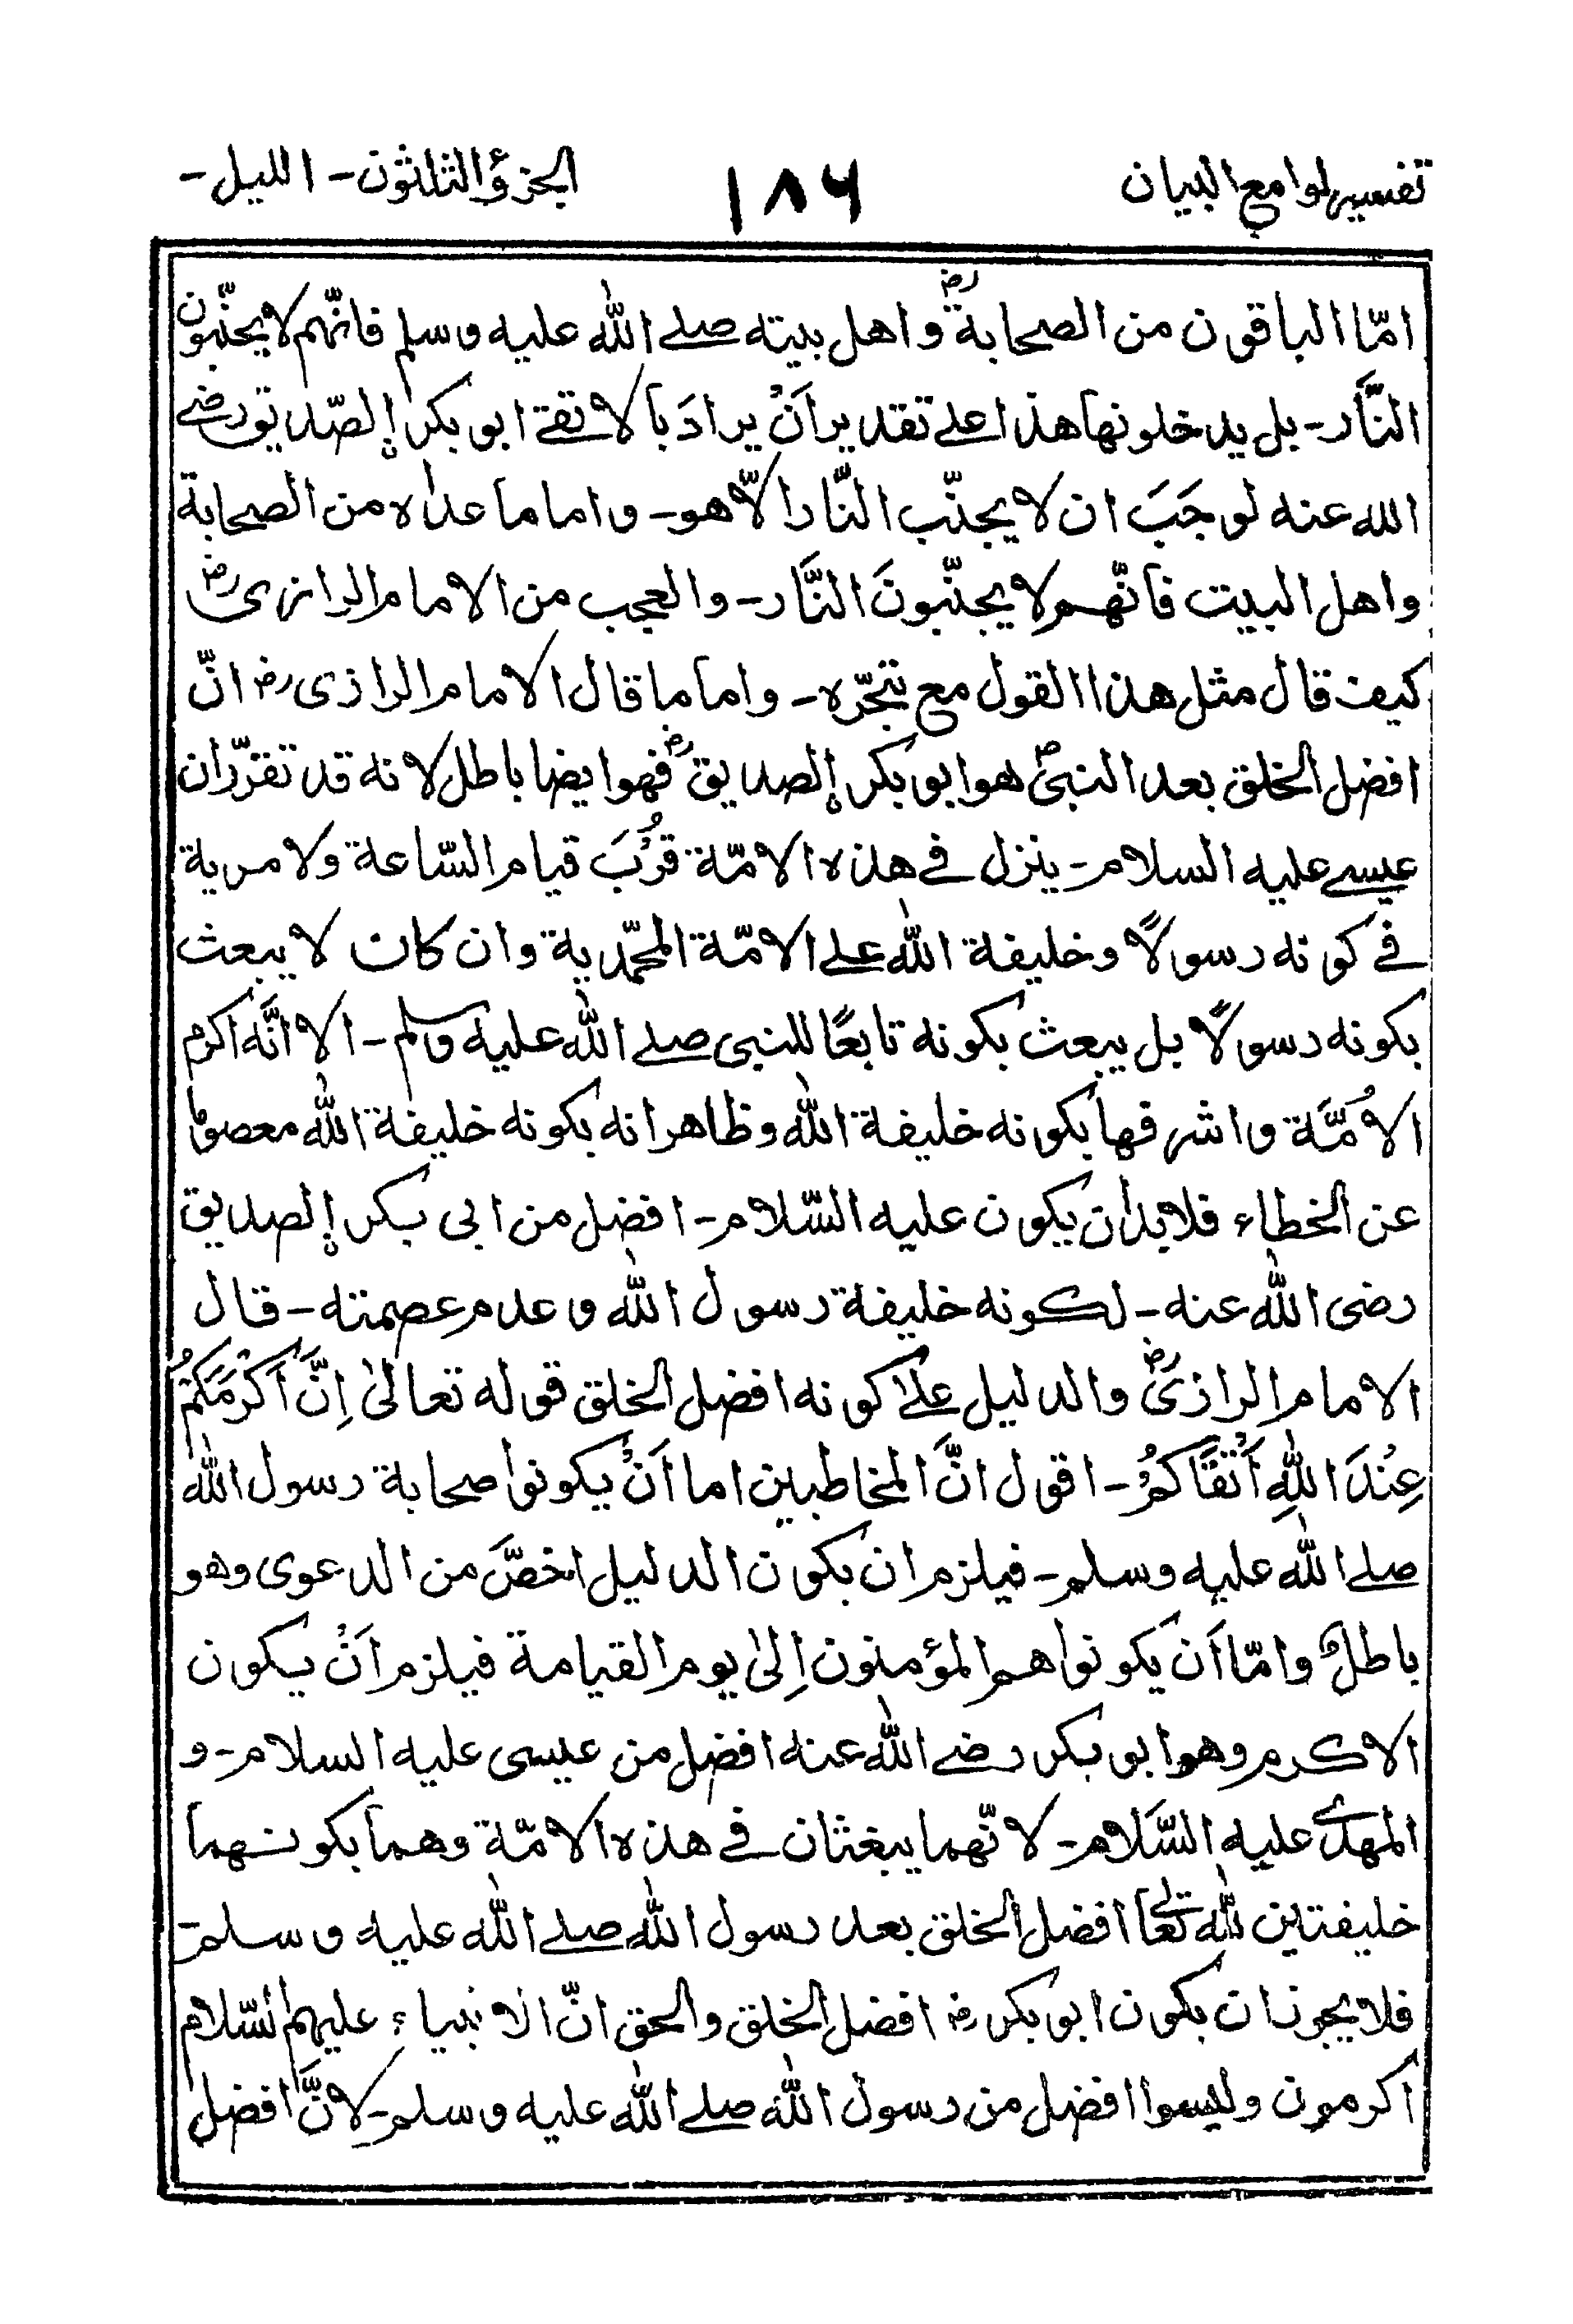 تفسير لوامع البيان
١٨٦
الجزؤ الثلثون - الليل -
امّا الباقون من الصحابة رض واهل بيته صلے الله عليه وسلم فانّهم لا يجنّبون
النَّار - بل يدخلونها هذا علے تقدير اَنْ يرادَ بالاتقے ابو بكر إلصّديق رضے
الله عنه لو جَبَ ان لا يجنّب النّار الاّ هو - واما ما عداه من الصحابة
واهل البيت فانّهم لا يجنّبونَ النَّار - والعجب من الامام الرازى رض
كيف قال مثل هذا القول مع تبحّره - واما ما قال الامام الرازى رض انّ
افضل الخلق بعد النبىؐ هو ابو بكر إلصديق رض فهو ايضا باطل لانه قد تقرّر ان
عيسے عليه السلام - ينزل فے هذه الامّة قُرْبَ قيام السّاعة ولا مرية
فے كونه رسولاً وخليفة الله علے الامّة المحمّدية وان كان لا يبعث
بكونه رسولاً بل يبعث بكونه تابعًا للنبى صلے الله عليه وسلم - الا انَّه اكرم
الاُمَّة واشرفها بكونه خليفة الله وظاهر انه بكونه خليفة الله معصوما
عن الخطاء فلا بد ان يكون عليه السّلام - افضل من ابى بكر إلصديق
رضى الله عنه - لكونه خليفة رسول الله وعدم عصمته - قال
الامام الرازىؒ والدليل علےٰ كونه افضل الخلق قوله تعالىٰ اِنَّ اَكْرَمَكُمْ
عِنْدَ اللهِ اَتْقَاكُمْ - اقول انَّ المخاطبين اما اَنْ يكونوا صحابة رسول الله
صلے الله عليه وسلم - فيلزم ان يكون الدليل اخصَّ من الدعوى وهو
باطلٌ وامّا اَن يكونوا هم المؤمنون اِلىٰ يوم القيامة فيلزم اَنْ يكون
الاكرم وهو ابو بكر رضے الله عنه افضل من عيسى عليه السلام - و
المهدى عليه السَّلام - لانّهما يبغثان فے هذه الامّة وهما بكونهما
خليفتين لله تعالى افضل الخلق بعد رسول الله صلے الله عليه وسلم -
فلا يجوز ان يكون ابو بكر رض افضل الخلق والحق انّ الانبياء عليهم السّلام
اكرمون وليسوا افضل من رسول الله صلے الله عليه وسلم - لانَّ افضل